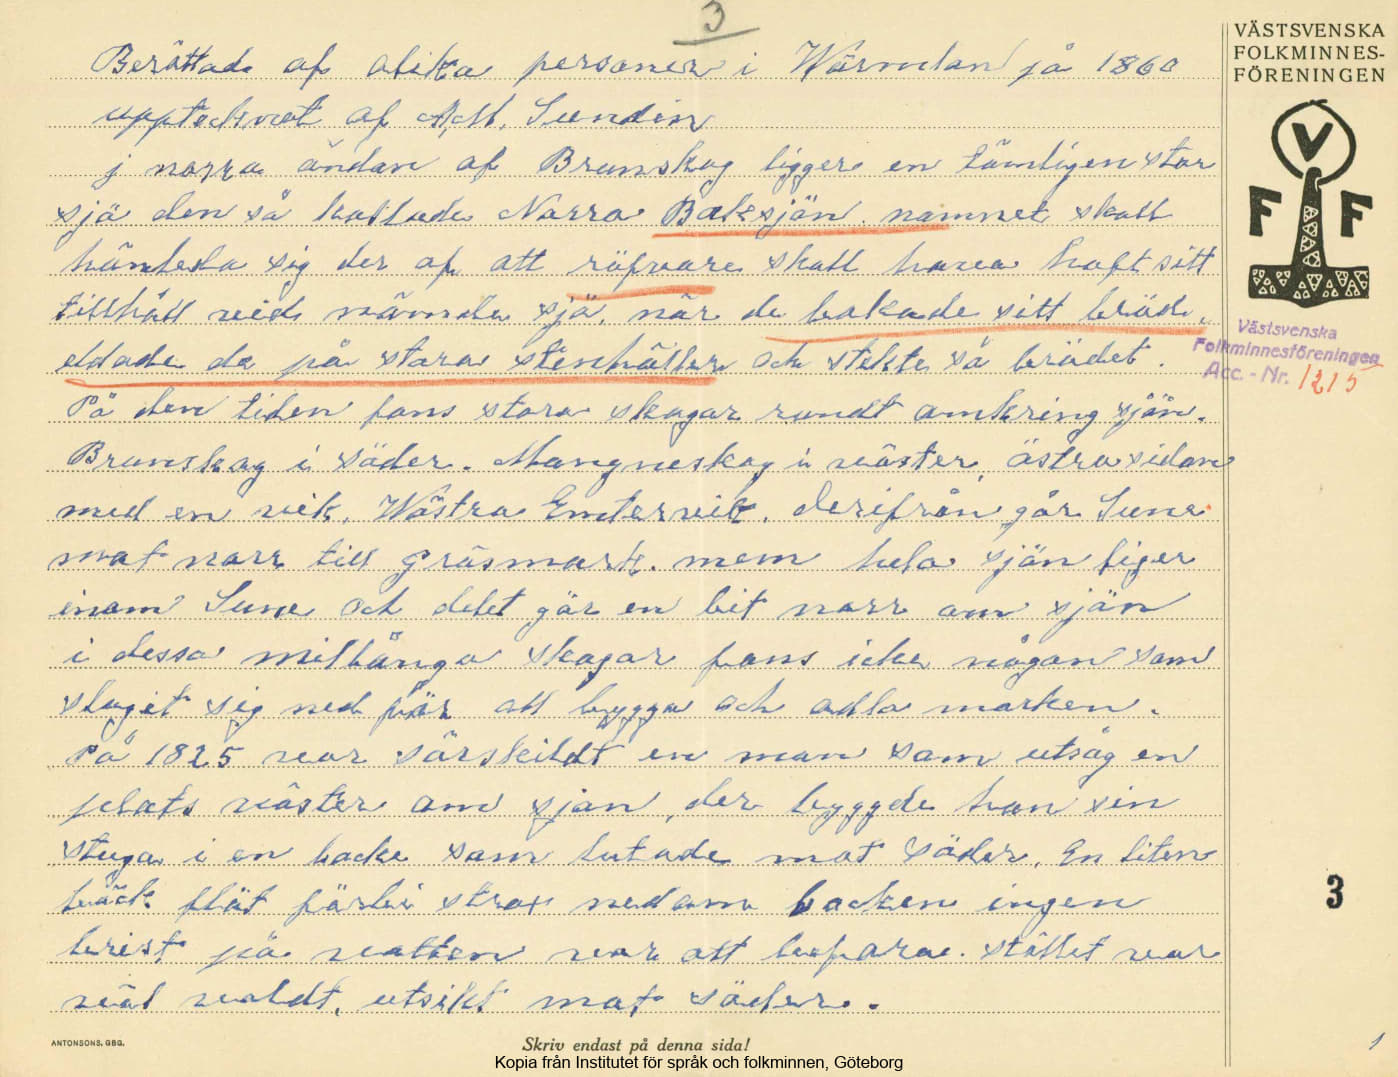 3
Berättade af olika personer i Wärmelan på 1860
upptecknat af A.M. Sundin
j norra ändan af Brunskog ligger en tämligen stor
sjö den så kallade Norra Baksjön. namnet skall
händela sig der af att röfvare skall hava haft sitt
tillhåll vid nämnda sjö. när de bakade sitt bröd.
eldade de på stora stenhäller och stekte så brödet.
På den tiden fans stora skogar rundt omkring sjön.
Brunskog i söder. Mangneskog i väster, östra sidan
med en vik. Wästra Emtervik. derifrån går Sune
mot norr till Gräsmark. mem hela sjön liger
inom Sune och delet går en bit norr om sjön
i dessa millånga skogar fans icke någon som
slagit sig ned för att bygga och odla marken.
På 1825 var särskildt en man som utsåg en
plats väster om sjön, der byggde han sin
stuga i en backe som lutade mot söder. En liten
bäck flöt förbi strax nedom backen ingen
brist på vatten var att befara. stället var
väl valdt. utsikt mot söder.
VÄSTSVENSKA
FOLKMINNES-
FÖRENINGEN
V
F F
Västsvenska
Folkminnesföreningen
Acc. - Nr. 1215
3
1
ANTONSONS. GBG.
Skriv endast på denna sida!
Kopia från Institutet för språk och folkminnen, Göteborg